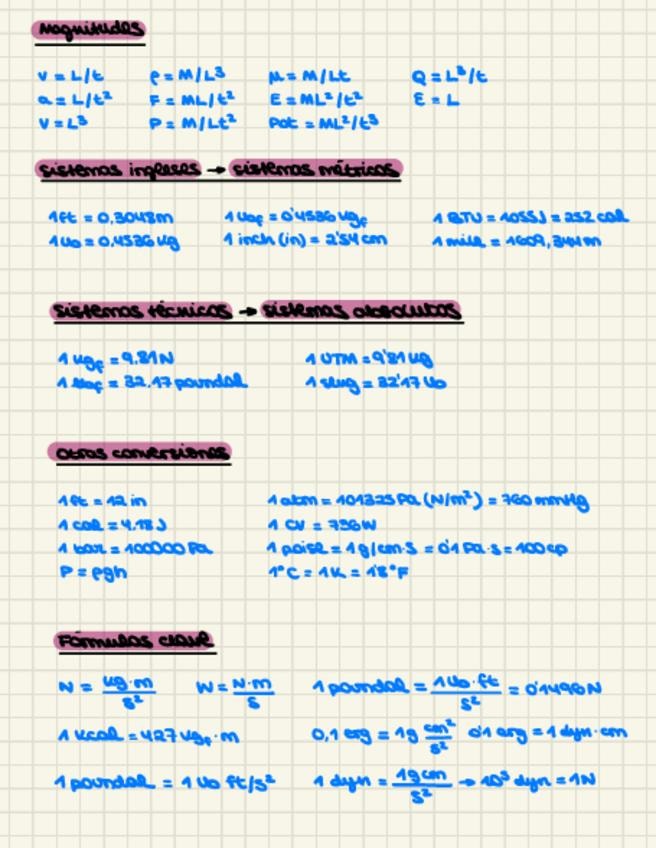 Magnitudes
v = L/t   ρ = M/L³   μ = M/Lt   Q = L³/t
a = L/t²   F = ML/t²   E = ML²/t²   ε = L
V = L³   P = M/Lt²   Pot = ML²/t³
Sistemas ingleses → sistemas métricos
1 ft = 0,3048m   1 lbf = 0'4536 kgf   1 BTU = 1055J = 252 cal
1 lb = 0,4536 kg   1 inch (in) = 2'54 cm   1 mile = 1609,344m
Sistemas técnicos → sistemas absolutos
1 kgf = 9,81N   1 UTM = 9'81 kg
1 lbf = 32,17 poundal   1 slug = 32'17 lb
Otras conversiones
1 ft = 12 in   1 atm = 101325 Pa (N/m²) = 760 mmHg
1 cal = 4,18 J   1 CV = 736W
1 bar = 100000 Pa   1 poise = 1 g/cm·s = 0'1 Pa·s = 100 cp
P = ρgh   1°C = 1K = 1'8°F
Fórmulas clave
N = kg·m/s²   W = N·m/s   1 poundal = 1 lb·ft/s² = 0'1496N
1 kcal = 427 kgf·m   0,1 erg = 1g cm²/s²   0'1 erg = 1 dyn·cm
1 poundal = 1 lb ft/s²   1 dyn = 1g cm/s² → 10⁵ dyn = 1N